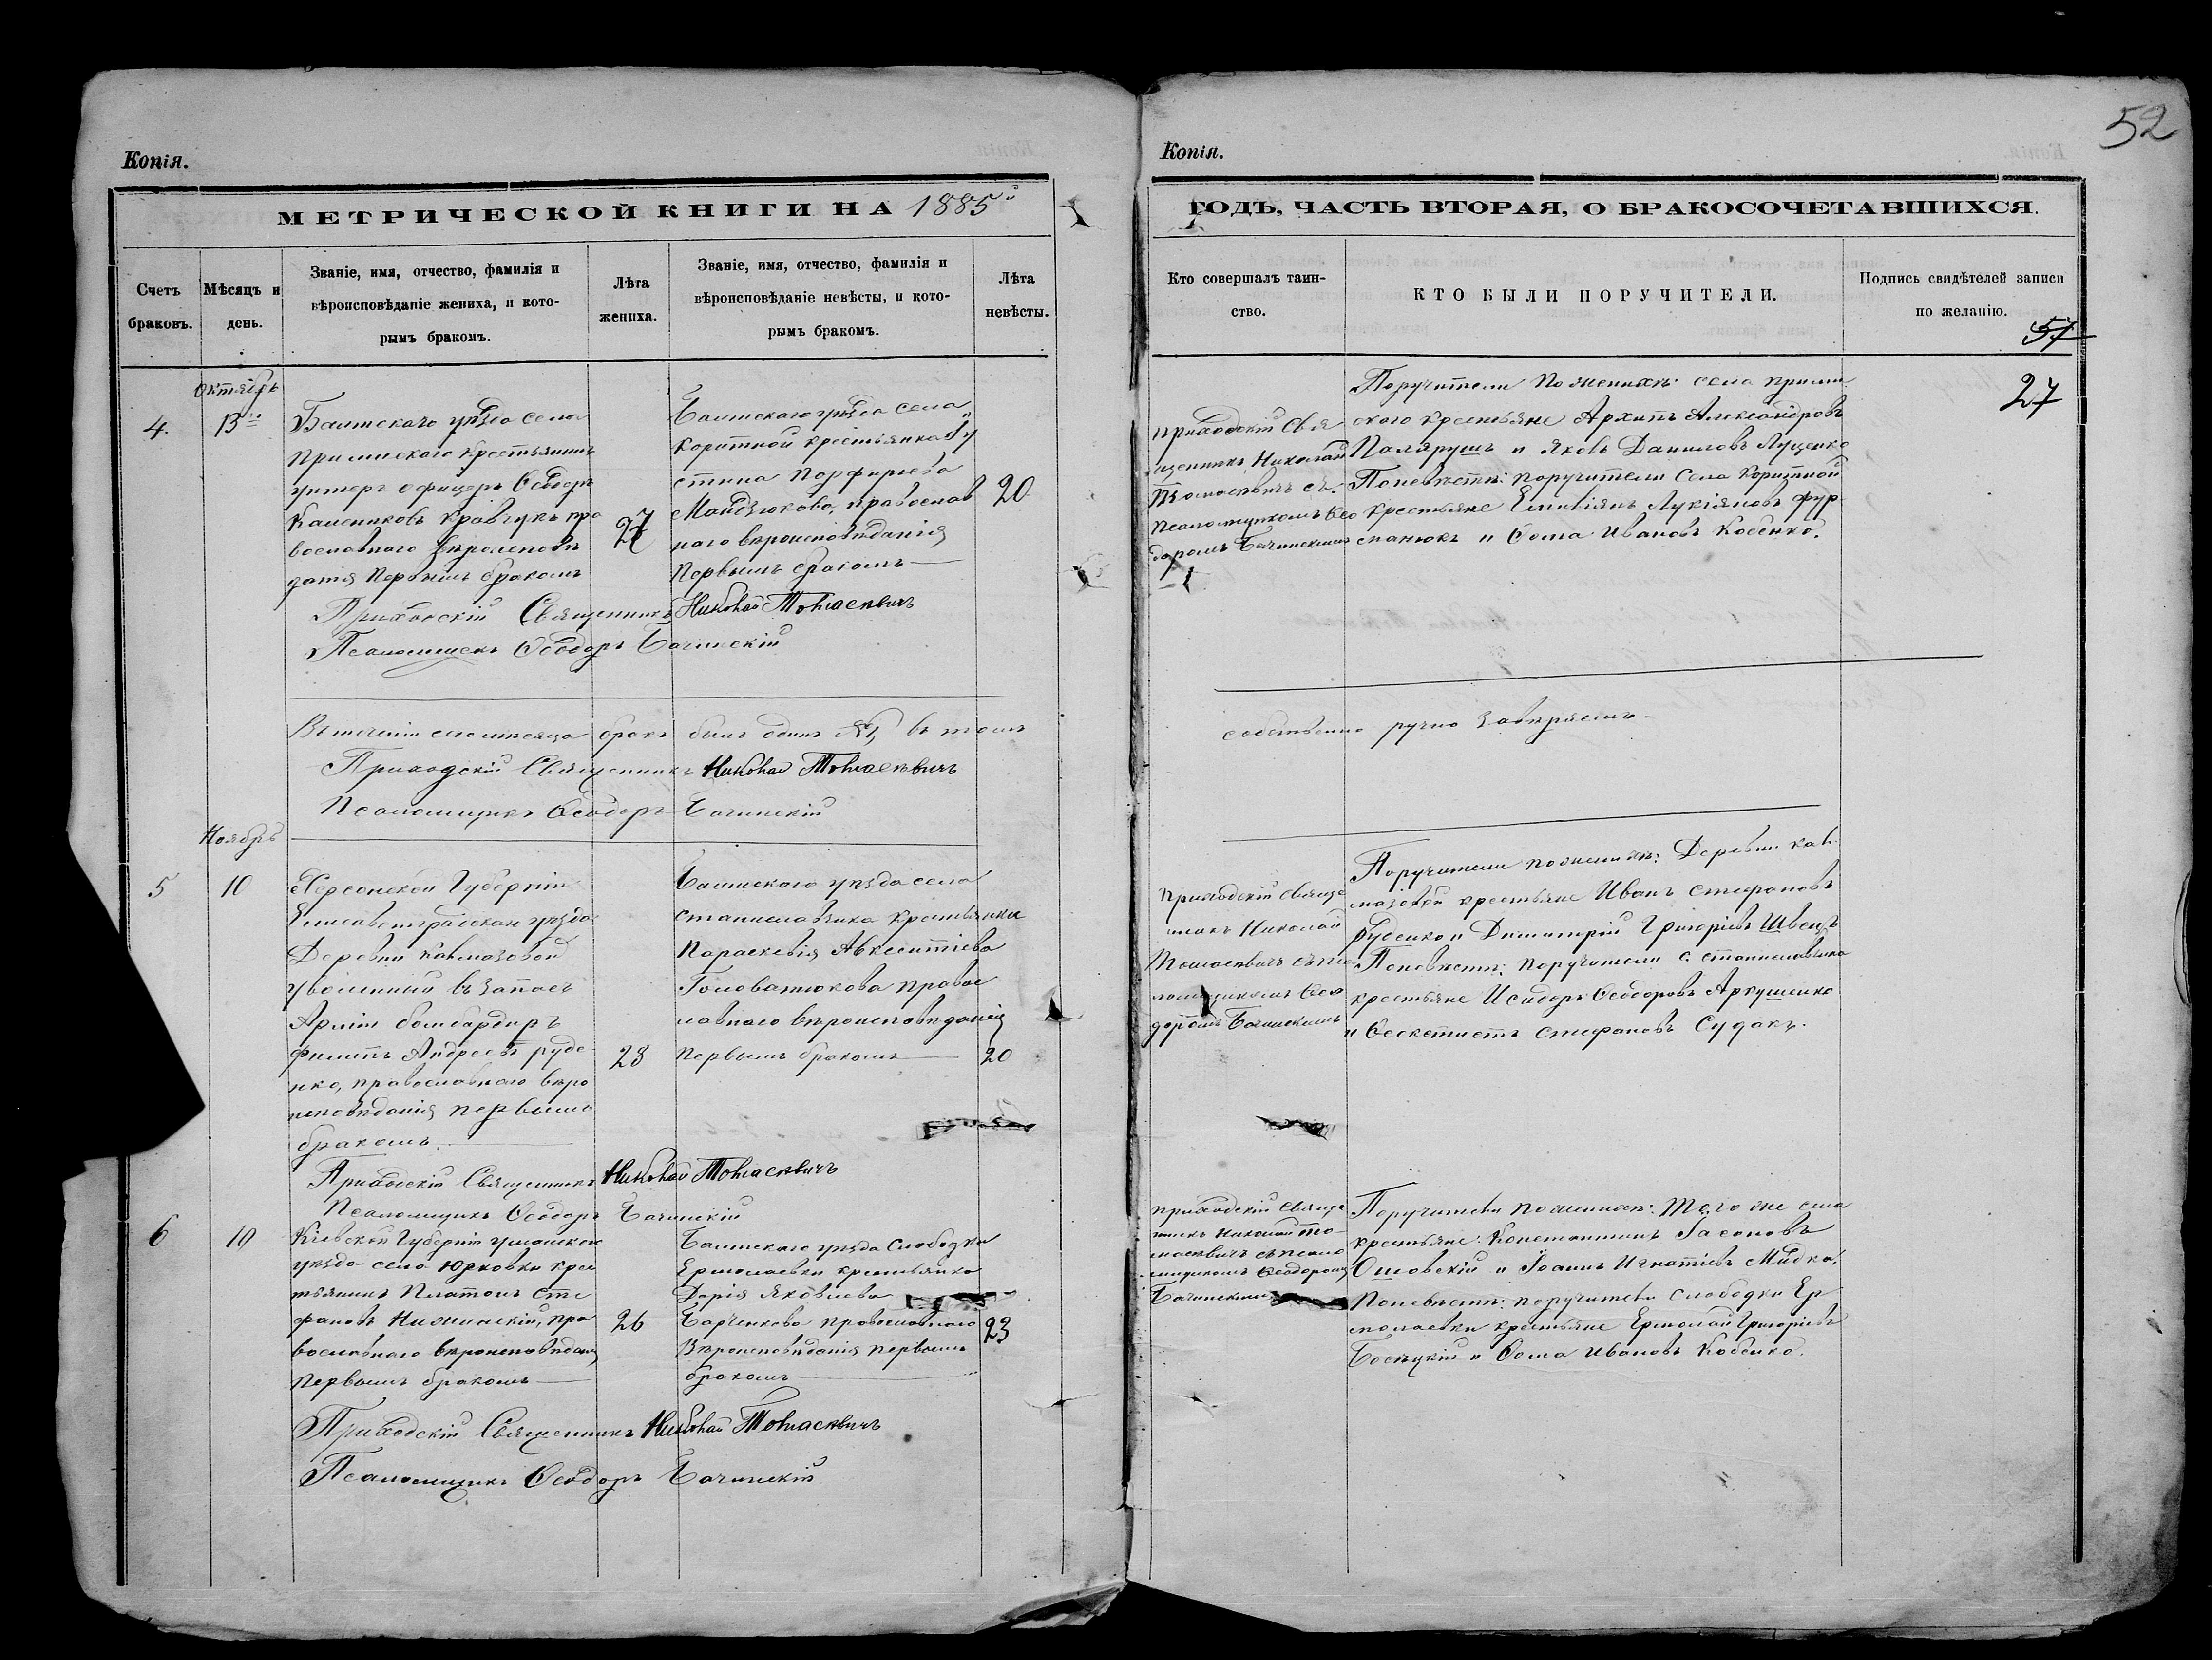 52
Копія.
МЕТРИЧЕСКОЙ КНИГИ НА 1885й
Счетъ браковъ.
Мѣсяцъ и день.
Званіе, имя, отчество, фамилія и
вѣроисповѣданіе жениха, и кото-
рымъ бракомъ.
Лѣта жениха.
Званіе, имя, отчество, фамилія и
вѣроисповѣданіе невѣсты, и кото-
рымъ бракомъ.
Лѣта невѣсты.
Октябрь
4.
13
Балтскаго уѣзда села
крестьянинъ
унтеръ офицеръ Ѳеодоръ
Кравчукъ пра
вославнаго вѣроисповѣ
данія первымъ бракомъ
27
Балтскаго уѣзда села
Коритной крестьянка Іу
стина Порфирьева
Мандзюкова, православ
наго вѣроисповѣданія
первымъ бракомъ
20
Приходскій Священникъ Николай Томасевичъ
Псаломщикъ Ѳеодоръ Бачинскій
бракъ былъ одинъ №1 въ томъ
Приходскій Священникъ Николай Томасевичъ
Псаломщикъ Ѳеодоръ Бачинскій
Ноябрь
5
10
Херсонской Губерніи
Елисаветградскаго уѣзда
Деревни Кавказовой
уволенный въ запасъ
Арміи бомбардиръ
Филиппъ Андреевъ Руде
нко, православнаго вѣро
исповѣданія первымъ
бракомъ.
28
Балтскаго уѣзда села
Станиславчика крестьянка
Параскевія Авксентіева
Головатюкова правос
лавнаго вѣроисповѣданія
первымъ бракомъ
20
Приходскій Священникъ Николай Томасевичъ
Псаломщикъ Ѳеодоръ Бачинскій
6
10
Кіевской Губерніи Уманскаго
уѣзда села Юрковки крес
тьянинъ Платонъ Сте
фановъ пра
вославнаго вѣроисповѣданія
первымъ бракомъ
26
Балтскаго уѣзда Слободки
Ермолаевки крестьянка
Дарія Яковлева
православнаго
вѣроисповѣданія первымъ
бракомъ
23
Приходскій Священникъ Николай Томасевичъ
Псаломщикъ Ѳеодоръ Бачинскій
Копія.
ГОДЪ, ЧАСТЬ ВТОРАЯ, О БРАКОСОЧЕТАВШИХСЯ.
Кто совершалъ таин-
ство.
КТО БЫЛИ ПОРУЧИТЕЛИ.
Подпись свидѣтелей записи
по желанію.
57
27
приходскій Свя
щенникъ Николай
Томасевичъ съ
псаломщикомъ Ѳео
доромъ Бачинскимъ
Поручители по женихѣ: села
крестьяне Архипъ Александровъ
Паляруш и Яковъ Даниловъ Луценко
По невѣстѣ: поручители Села Коритной
крестьяне Емиліянъ Лукіяновъ Фур
манюкъ и Ѳома Ивановъ Кобенко.
собственно ручно завѣряемъ
приходскій Свяще
нникъ Николай
Томасевичъ съ пса
ломщикомъ Ѳео
доромъ Бачинскимъ
Поручители по женихѣ: Деревни Кав
казовой крестьяне Иванъ Стефановъ
Руденко и Димитрій Григоріевъ Швецъ
По невѣстѣ: поручители с. Станиславчика
крестьяне Исидоръ Ѳеодоровъ
и Ѳеоктистъ Стефановъ Судакъ.
приходскій Свяще
нникъ Николай То
масевичъ съ псало
мщикомъ Ѳеодоромъ
Бачинскимъ
Поручители по женихѣ: Того же села
крестьяне: Константинъ Іасоновъ
и Іоаннъ Игнатіевъ
По невѣстѣ: поручители Слободки Ер
молаевки крестьяне Ермолай Григоріевъ
и Ѳома Ивановъ Кобенко.